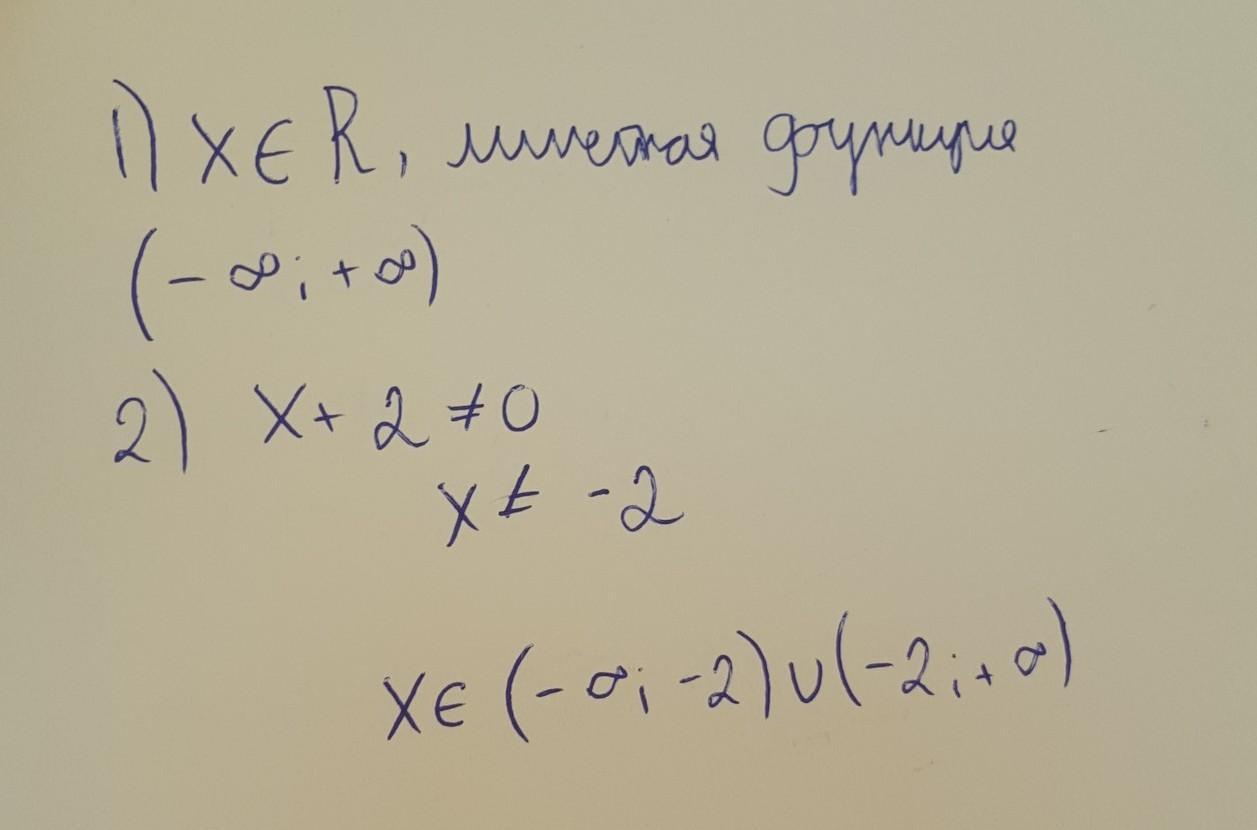 1) x∈R, линейная функция
(-∞; +∞)
2) x+2≠0
x≠ -2
x∈ (-∞; -2)∪(-2; +∞)